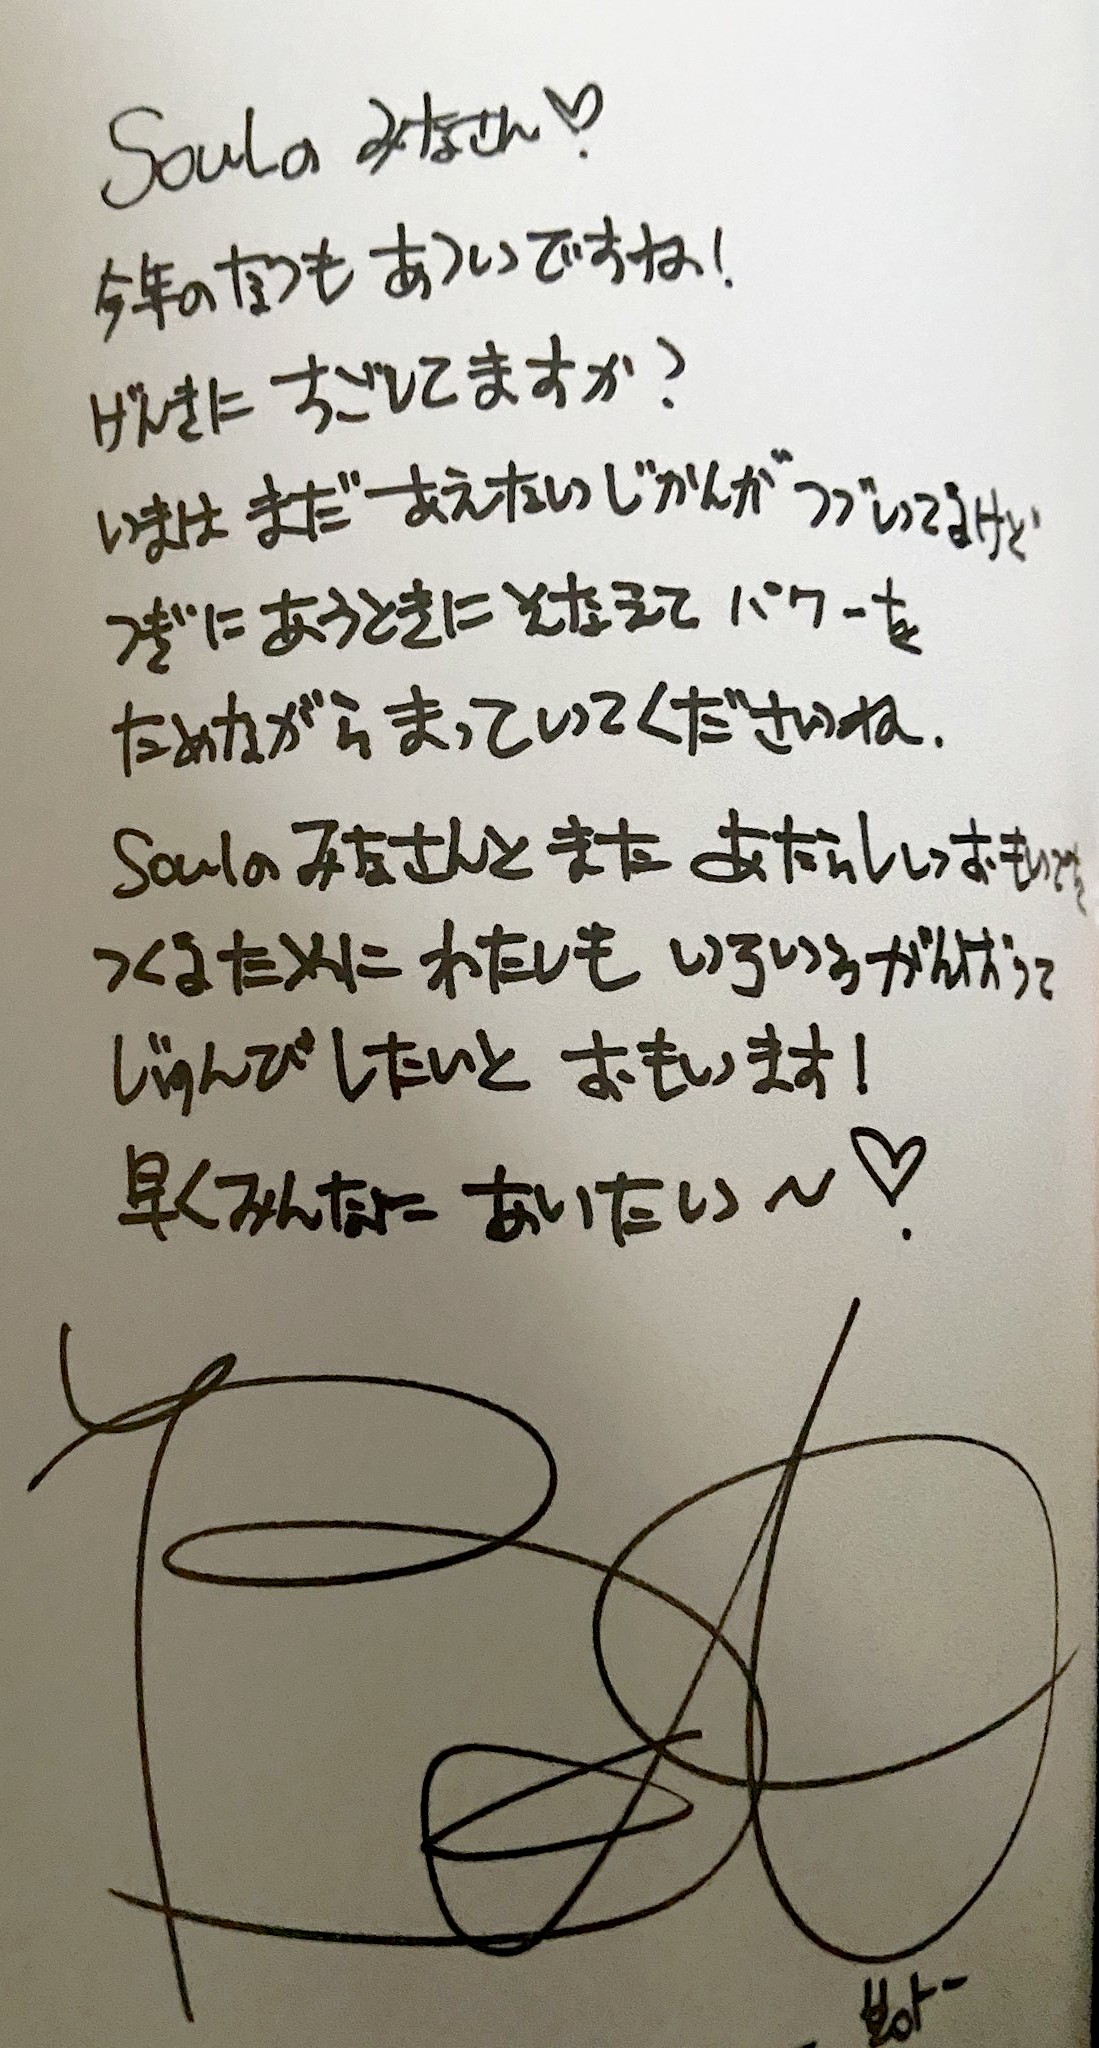 Soulの みなさん♡
今年の なつも あついですね!
げんきに すごしてますか?
いまは まだ あえないじかんが つづいてるけど
つぎに あうときに そなえて パワーを
ためながら まっていてくださいね.
Soulの みなさんと また あたらしい おもいでを
つくるために わたしも いろいろ がんばって
じゅんび したいと おもいます!
早くみんなに あいたい〜♡
BoA
보아-